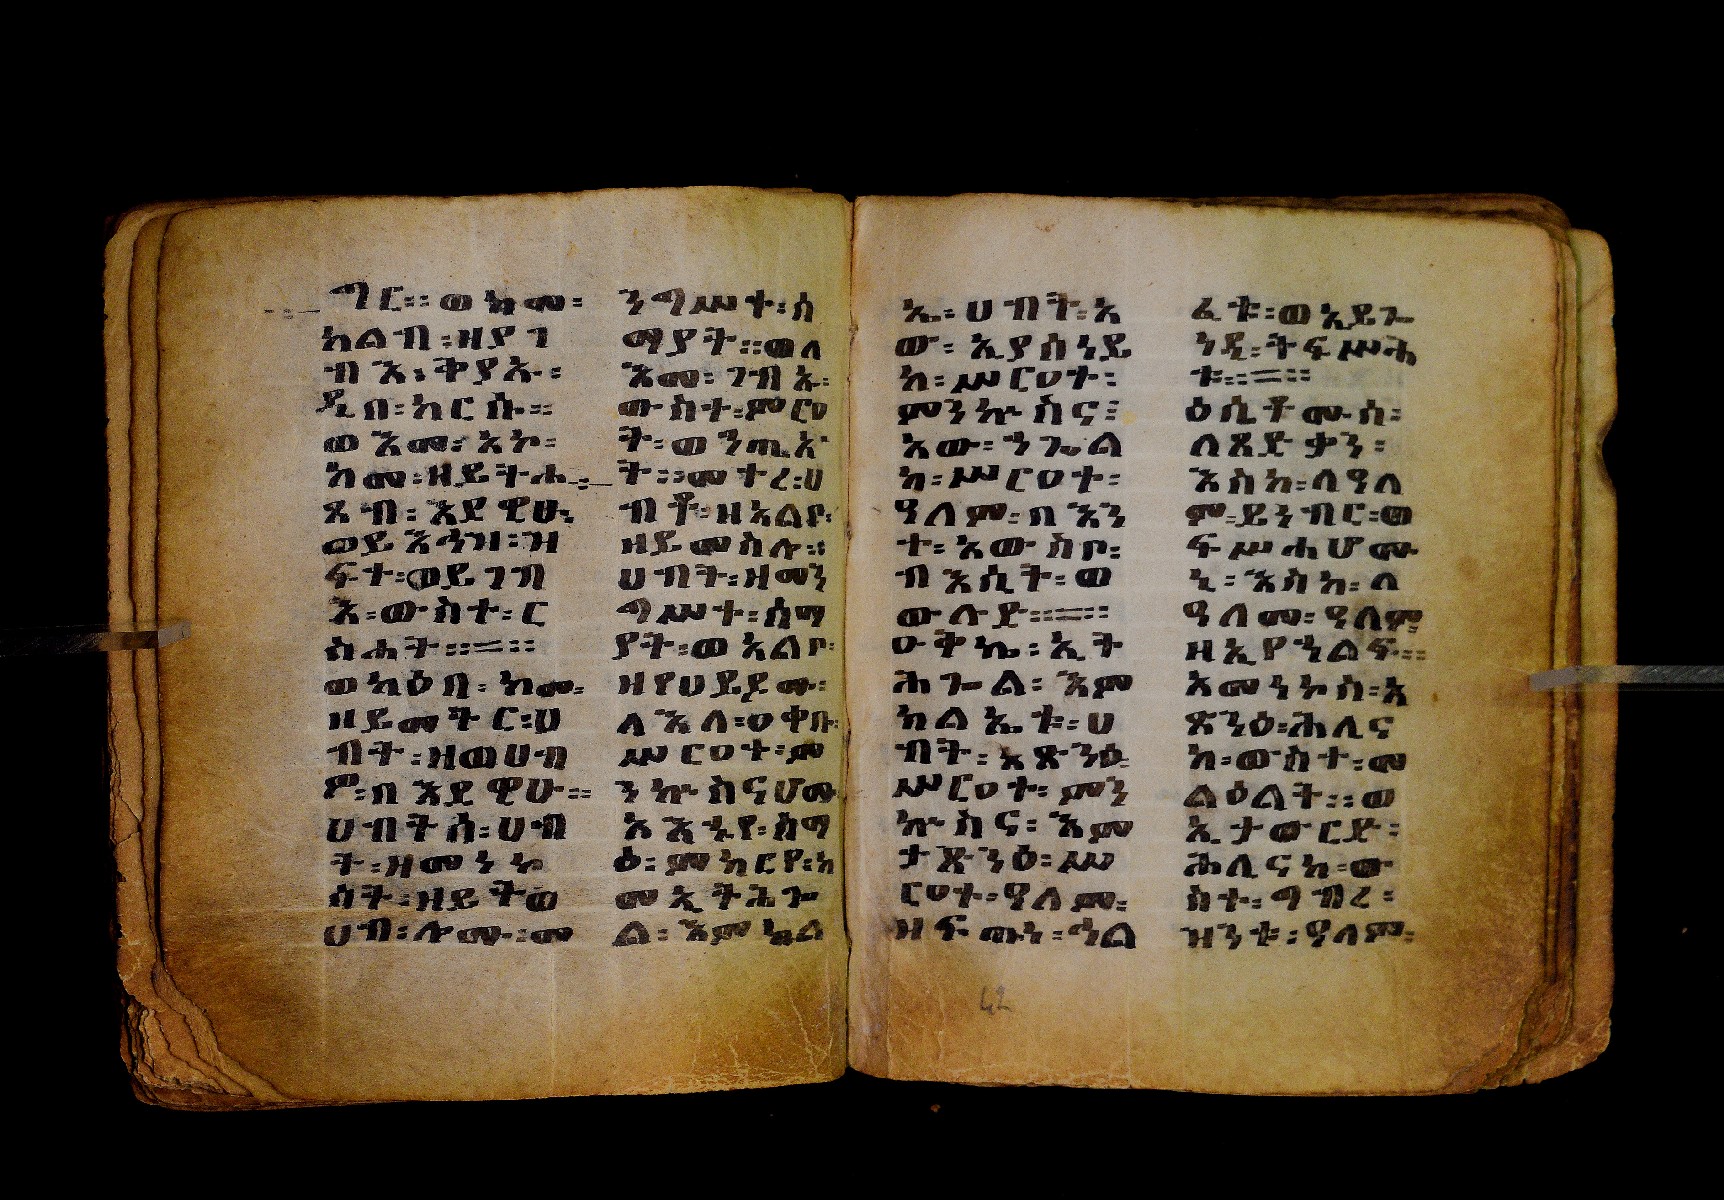 ግር። ወከመ፡
ከልብ፡ ዘያገ
ብእ፡ ቅያኡ፡
ዲበ፡ ከርሱ።
ወእመ፡ አኮ፡
ከመ፡ ዘይትሐ
ጸብ፡ እደዊሁ፡
ወይእኅዝ፡ ዝ
ፍተ፡ ወይገብ
እ፡ ውስተ፡ ር
ስሐት።=።
ወካዕበ፡ ከመ፡
ዘይመትር፡ ሀ
ብት፡ ዘወሀብ
ሞ፡ በእደዊሁ።
ሀብትሰ፡ ሀብ
ት፡ ዘመነኮ
ሳት፡ ዘይትወ
ሀብ፡ ሎሙ፡ መ
ንግሥተ፡ ሰ
ማያት። ወለ
እመ፡ ገብኡ፡
ውስተ፡ ምርዐ
ት፡ ወኀጢአ
ት። መተረ፡ ሀ
ብቶ፡ ዘአልቦ፡
ዘይመስሎ።
ሀብት፡ ዘመን
ግሥተ፡ ሰማ
ያት፡ ወአልቦ፡
ዘየሀይዶሙ፡
ለእለ፡ ዐቀቡ፡
ሥርዐተ፡ ም
ንኵስናሆሙ
አእኁየ፡ ስማ
ዕ፡ ምክርየ፡ ከ
መ ኢትሕጐ
ል፡ እምክል
ኤ፡ ሀብት፡ አ
ው፡ ኢያሰነይ
ከ፡ ሥርዐተ፡
ምንኵስና፡
አው፡ ኀጐል
ከ፡ ሥርዐተ፡
ዓለም፡ በእን
ተ፡ አውስቦ፡
ብእሲት፡ ወ
ውሉድ።=።
ዑቅኬ፡ ኢት
ሕጐል፡ እም
ክልኤቱ፡ ሀ
ብት፡ አጽንዕ፡
ሥርዐተ፡ ምን
ኵስና፡ እም
ታጸንዕ፡ ሥ
ርዐተ፡ ዓለም፡
ዘፍጡነ፡ ኀል
ፈቱ፡ ወአይጐ
ነዲ፡ ትፍሥሕ
ቱ።=።
ዕሴቶሙሰ፡
ለጻድቃን፡
እስከ፡ ለዓለ
ም፡ ይነብር፡ ወ
ፍሥሐሆሙ
ኒ፡ እስከ፡ ለ
ዓለመ፡ ዓለም፡
ዘኢየኀልፍ።
አመነኮስ፡ አ
ጽንዕ፡ ሕሊና
ከ፡ ውስተ፡ መ
ልዕልት። ወ
ኢታውርድ፡
ሕሊናከ፡ ው
ስተ፡ ግብረ፡
ዝንቱ፡ ዓለም፡
42